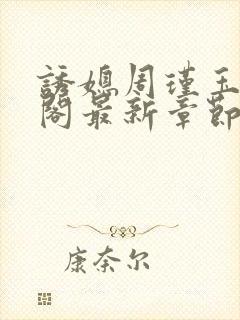 誘媳周瑾玉
閣最新章節
康奈尔